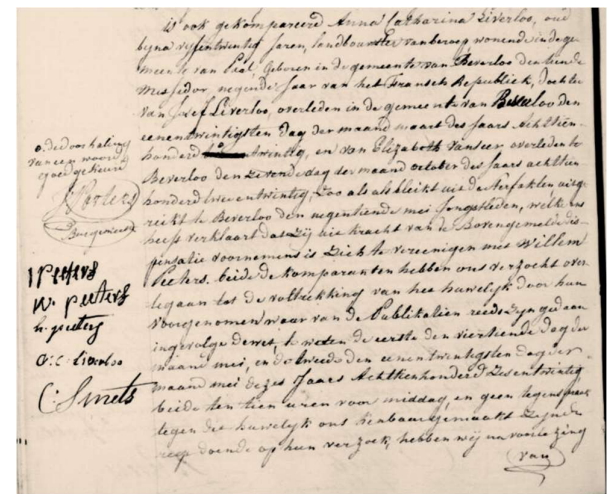 is ook gekompareerd Anna Catharina Liverloo, oud
byna vyfentwintig jaren, landbouwster van beroep, wonende in de ge
meente van Paal Geboren in de gemeente van Beverloo den tiende
Messedor, negende jaar van het Fransch Republiek, dochter
van Josef Liverloo, overleden in de gemeente van Beverloo den
eenentwintigsten dag der maand maart des jaars achttien
honderd twintig, en van Elizabeth Vanseer overleden te
Beverloo den zevende dag der maand october des jaars achttien
honderd tweeentwintig, Zoo als als blykt uit de Aerfakten uitge
reikt te Beverloo den negentiende mei jongstleden, welk ons
heeft verklaart dat zy uit kracht van de Bovengemelde dis
pensatie voornemens is Zich te vereenigen met Willem
Peeters. beide de komparanten hebben ons verzocht over
tegaan tot de voltrekking van het huwelyk door hun
voorgenomen waar van de Publikatien reeds zyn gedaan
ingevolge de wet, te weten de eerste den viertiende dag der
maand mei, en de tweede den eenentwintigsten dag der
maand mei dezes jaars Achttienhonderd zesentwintig
beide ten tien uren voor middag, en geen tegenspraak
tegen dit huwelyk ons kenbaar gemaakt zynde
regt doende op hun verzoek, hebben wy na voorlezing
van
de doorhaling
van een woord
goedgekeurd
Burgemeester
J Peeters
W. peeters
h. peeters
a. c. Liverloo
C: Smets